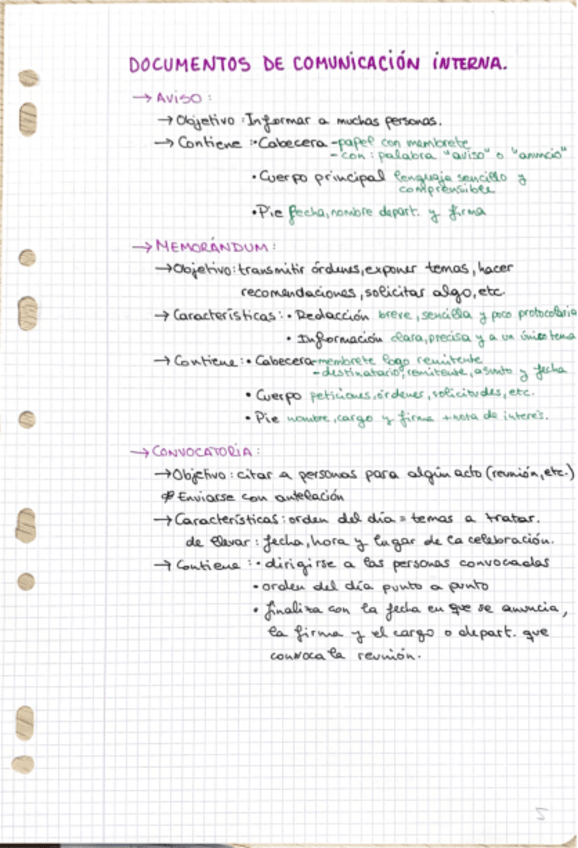 DOCUMENTOS DE COMUNICACIÓN INTERNA.
→ AVISO:
→ Objetivo: Informar a muchas personas.
→ Contiene: • Cabecera - papel con membrete
- con: palabra "aviso" o "anuncio"
• Cuerpo principal lenguaje sencillo y
comprensible
• Pie fecha, nombre depart. y firma
→ MEMORÁNDUM:
→ Objetivo: transmitir órdenes, exponer temas, hacer
recomendaciones, solicitar algo, etc.
→ Características: • Redacción breve, sencilla y poco protocolaria
• Información clara, precisa y a un único tema
→ Contiene: • Cabecera - membrete logo remitente
- destinatario, remitente, asunto y fecha
• Cuerpo peticiones, órdenes, solicitudes, etc.
• Pie nombre, cargo y firma + nota de interés.
→ CONVOCATORIA:
→ Objetivo: citar a personas para algún acto (reunión, etc.)
Enviarse con antelación
→ Características: orden del día = temas a tratar.
de llevar: fecha, hora y lugar de la celebración.
→ Contiene: • dirigirse a las personas convocadas
• orden del día punto a punto
• finaliza con la fecha en que se anuncia,
la firma y el cargo o depart. que
convoca la reunión.
5